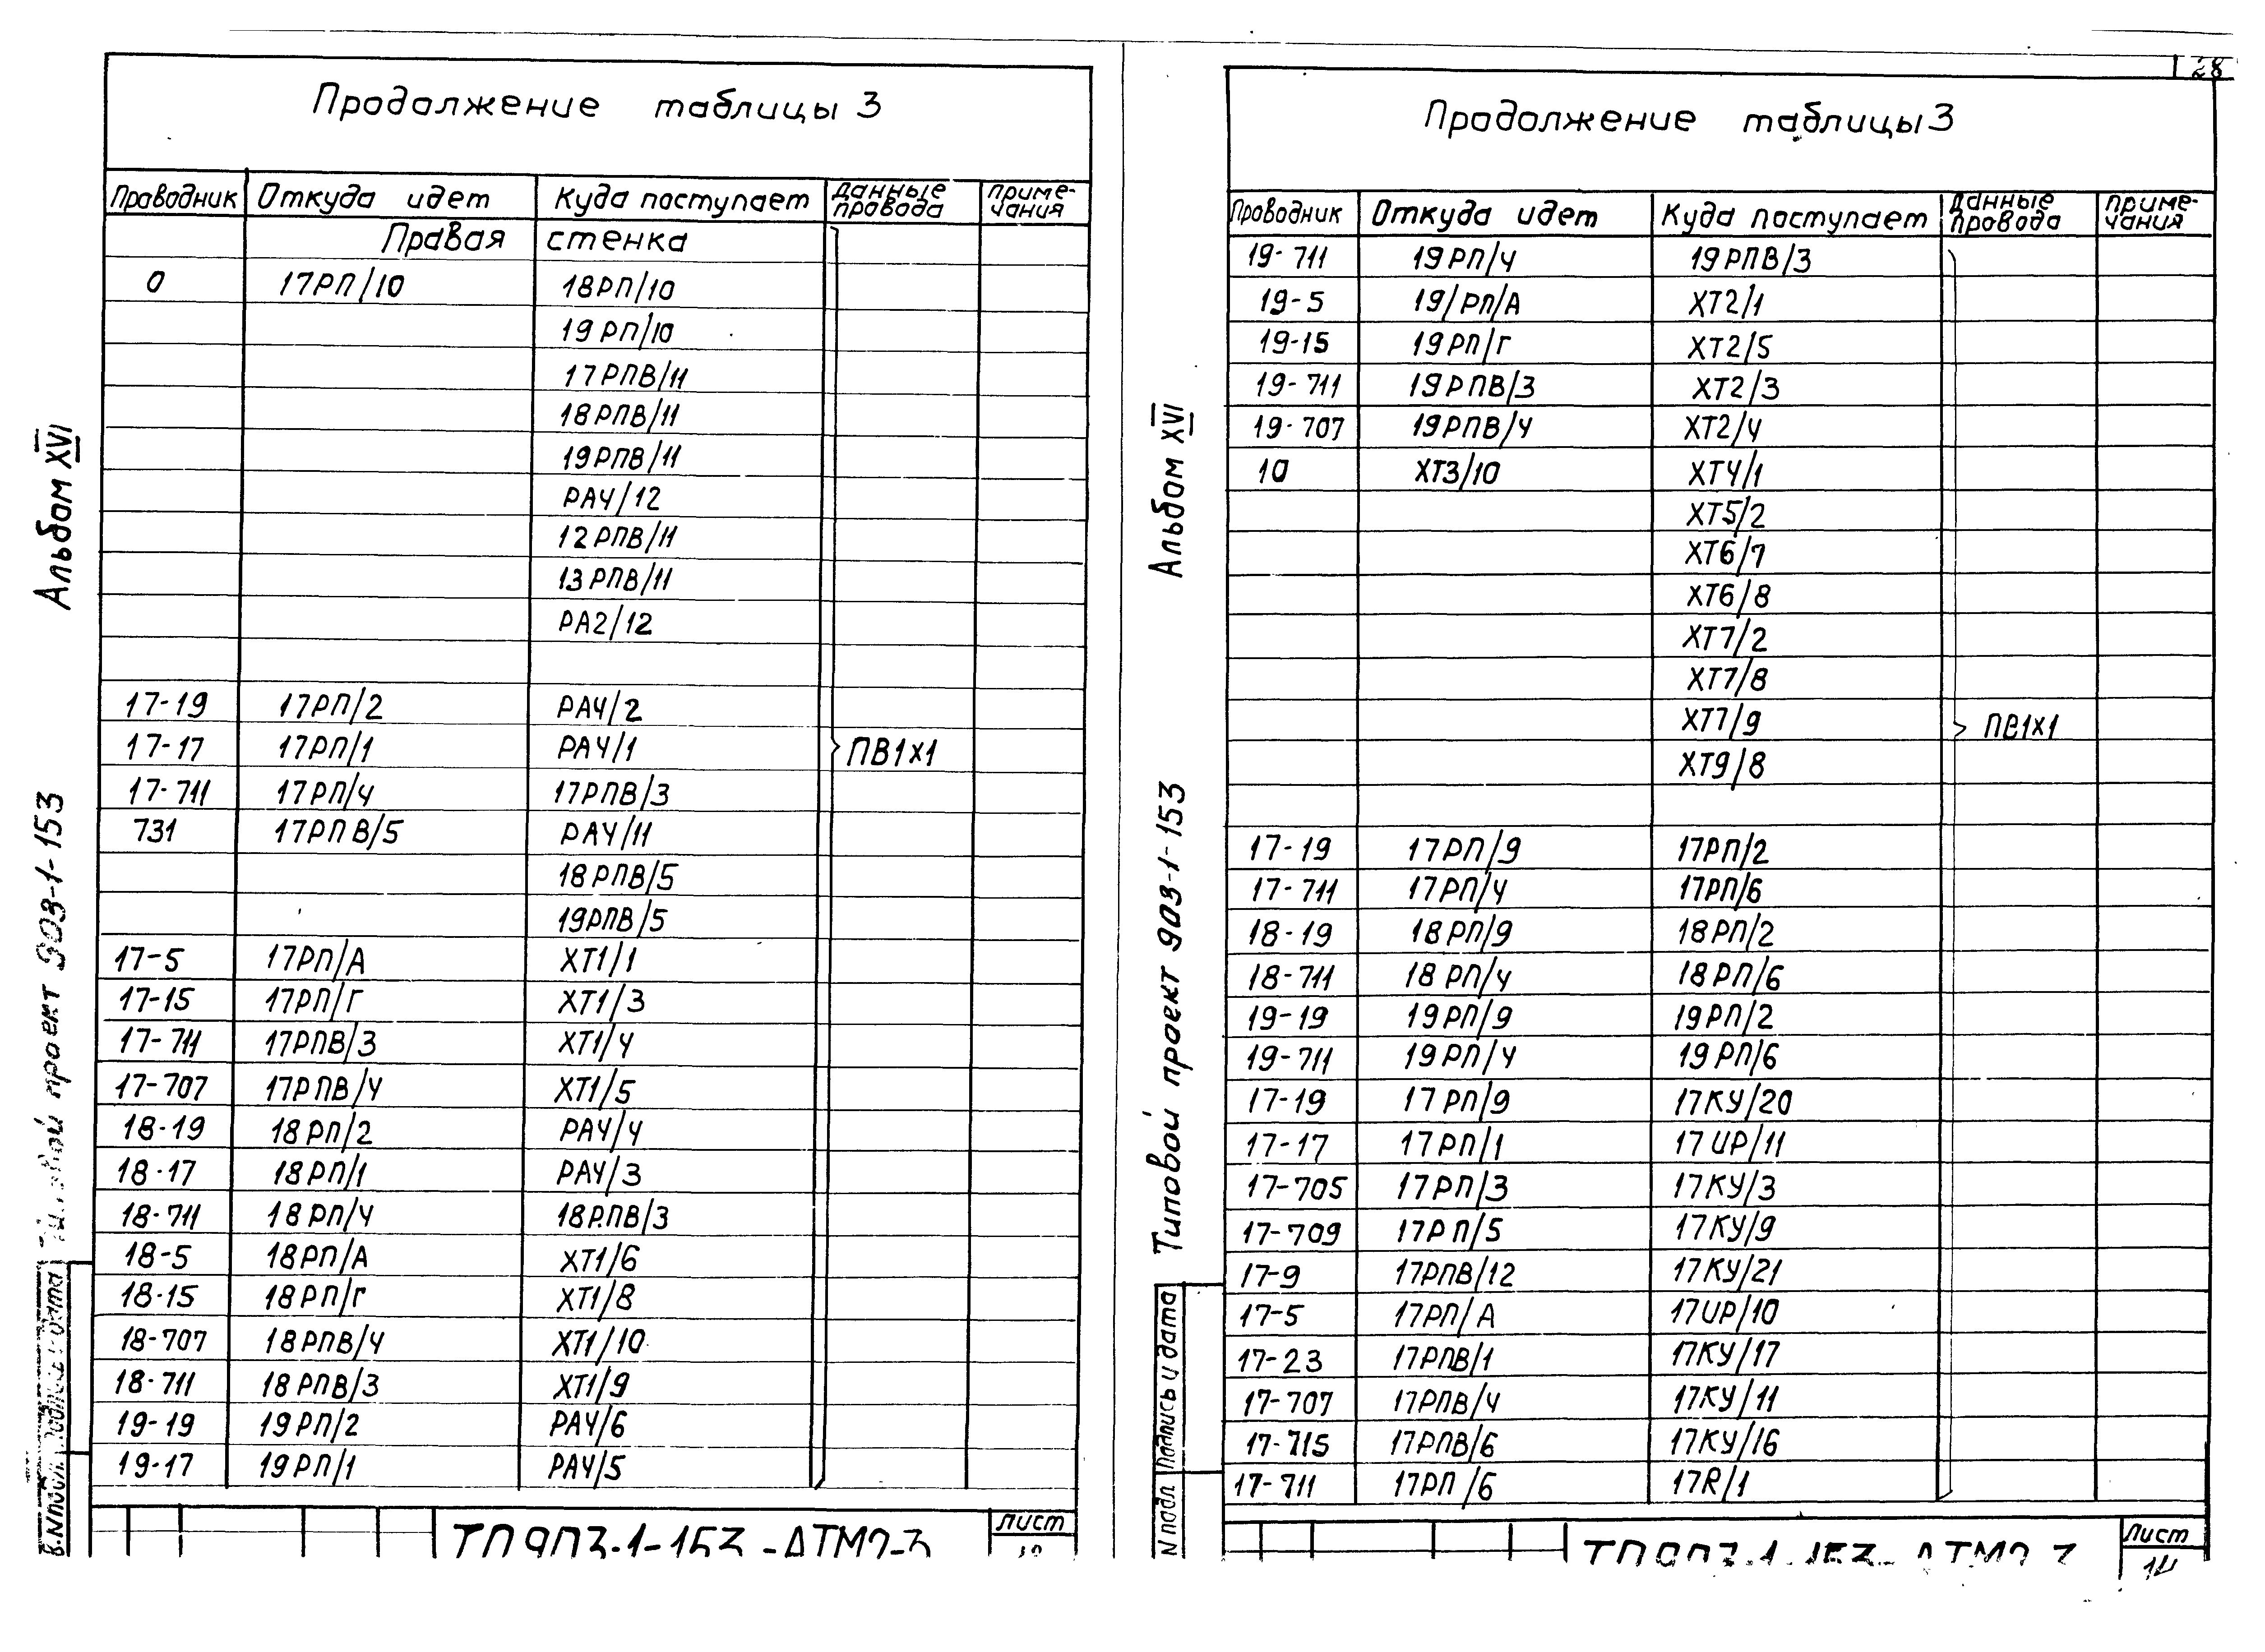 28
Продолжение таблицы 3
Проводник Откуда идет Куда поступает Данные провода Приме-чания
Правая стенка
0 17РП/10 18РП/10
19РП/10
17РПВ/11
18РПВ/11
19РПВ/11
РА4/12
12РПВ/11
13РПВ/11
РА2/12
17-19 17РП/2 РА4/2
17-17 17РП/1 РА4/1 ПВ1х1
17-711 17РП/4 17РПВ/3
731 17РПВ/5 РА4/11
18РПВ/5
19РПВ/5
17-5 17РП/А ХТ1/1
17-15 17РП/Г ХТ1/3
17-711 17РПВ/3 ХТ1/4
17-707 17РПВ/4 ХТ1/5
18-19 18РП/2 РА4/4
18-17 18РП/1 РА4/3
18-711 18РП/4 18РПВ/3
18-5 18РП/А ХТ1/6
18-15 18РП/Г ХТ1/8
18-707 18РПВ/4 ХТ1/10
18-711 18РПВ/3 ХТ1/9
19-19 19РП/2 РА4/6
19-17 19РП/1 РА4/5
Альбом XVI
проект 903-1-153
ТП 903-1-153-АТМ2-3
Лист
Продолжение таблицы 3
Проводник Откуда идет Куда поступает Данные провода Приме-чания
19-711 19РП/4 19РПВ/3
19-5 19/РП/А ХТ2/1
19-15 19РП/Г ХТ2/5
19-711 19РПВ/3 ХТ2/3
19-707 19РПВ/4 ХТ2/4
10 ХТ3/10 ХТ4/1
ХТ5/2
ХТ6/7
ХТ6/8
ХТ7/2
ХТ7/8
ХТ7/9 ПВ1х1
ХТ9/8
17-19 17РП/9 17РП/2
17-711 17РП/4 17РП/6
18-19 18РП/9 18РП/2
18-711 18РП/4 18РП/6
19-19 19РП/9 19РП/2
19-711 19РП/4 19РП/6
17-19 17РП/9 17КУ/20
17-17 17РП/1 17ИР/11
17-705 17РП/3 17КУ/3
17-709 17РП/5 17КУ/9
17-9 17РПВ/12 17КУ/21
17-5 17РП/А 17ИР/10
17-23 17РПВ/1 17КУ/17
17-707 17РПВ/4 17КУ/11
17-715 17РПВ/6 17КУ/16
17-711 17РП/6 17R/1
Альбом XVI
Типовой проект 903-1-153
Подпись и дата
N подл
ТП 903-1-153-АТМ2-3
Лист
14